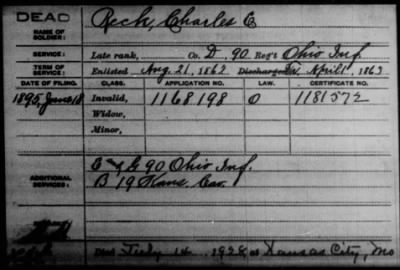 DEAD
NAME OF SOLDIER: Rech, Charles E
SERVICE: Late rank, Co. D, 90 Reg't Ohio Inf.
TERM OF SERVICE: Enlisted Aug. 21, 1862 Discharged April 1, 1863
DATE OF FILING. CLASS. APPLICATION NO. LAW. CERTIFICATE NO.
1895, June 18 Invalid, 1168198 O 1181572
Widow,
Minor,
ADDITIONAL SERVICES: E & G 90 Ohio Inf.
B 19 Kans. Cav.
Died July 14, 1928 at Kansas City, Mo